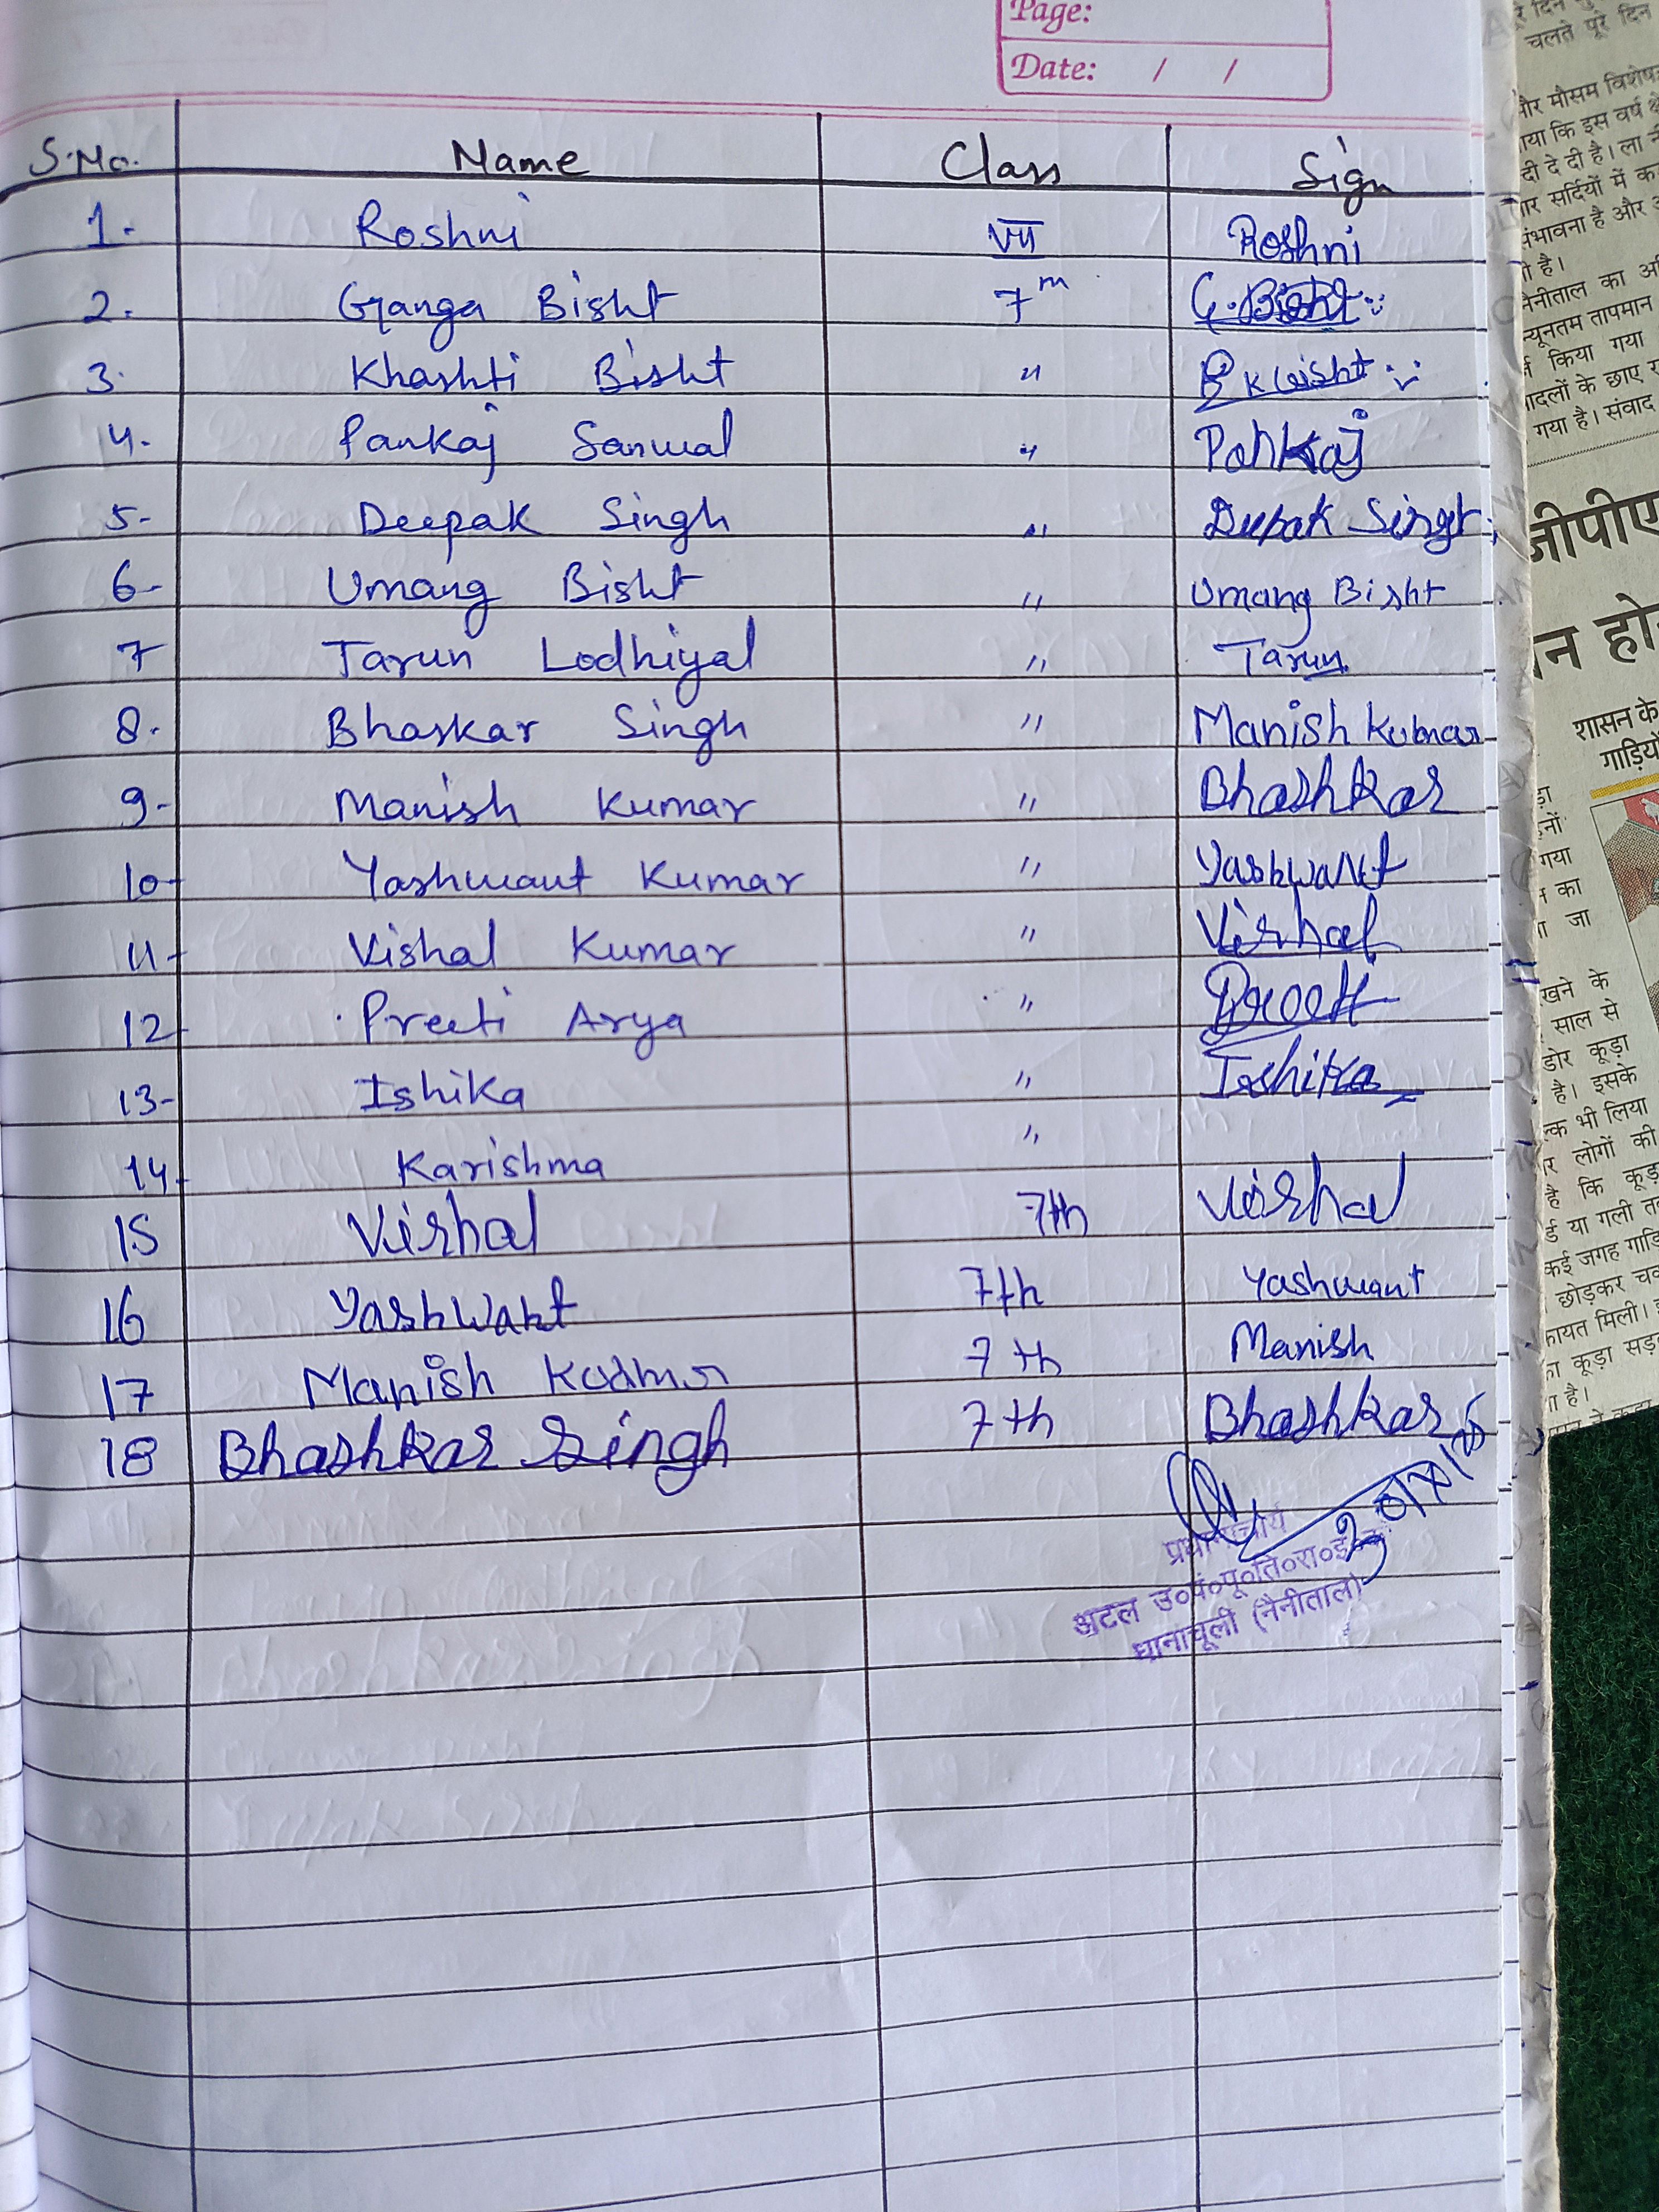 Page:
Date: / /
S.No. Name Class Sign
1. Roshni VII Roshni
2. Ganga Bisht 7th G. Bisht
3. Khashti Bisht "
4. Pankaj Sanwal " Pankaj
5- Deepak Singh " Deepak Singh
6- Umang Bisht " Umang Bisht
7 Tarun Lodhiyal " Tarun
8. Bhaskar Singh " Manish Kumar
9- Manish Kumar " Bhashkar
10- Yashwant Kumar " Yashwant
11- Vishal Kumar " Vishal
12- Preeti Arya " Preeti
13- Ishika " Ishika
14- Karishma "
15 Vishal 7th Vishal
16 Yashwant 7th Yashwant
17 Manish 7th Manish
18 Bhashkar Singh 7th Bhashkar
प्रधानाचार्य
अटल उ०पं०पू०ति०रा०इ०
धानाचूली (नैनीताल)
चलते पूरे दिन
और मौसम विशेषज्ञ
कि इस वर्ष
दी दे दी है। ला
सर्दियों में
संभावना है और
है।
नैनीताल का
न्यूनतम तापमान
किया गया
बादलों के छाए
गया है। संवाद
जीपीए
शासन के
गाड़ियों
गया
का
जा
के
साल से
डोर कूड़ा
है। इसके
भी लिया
लोगों की
है कि कूड़ा
या गली
कई जगह
छोड़कर
मिली।
कूड़ा
है।